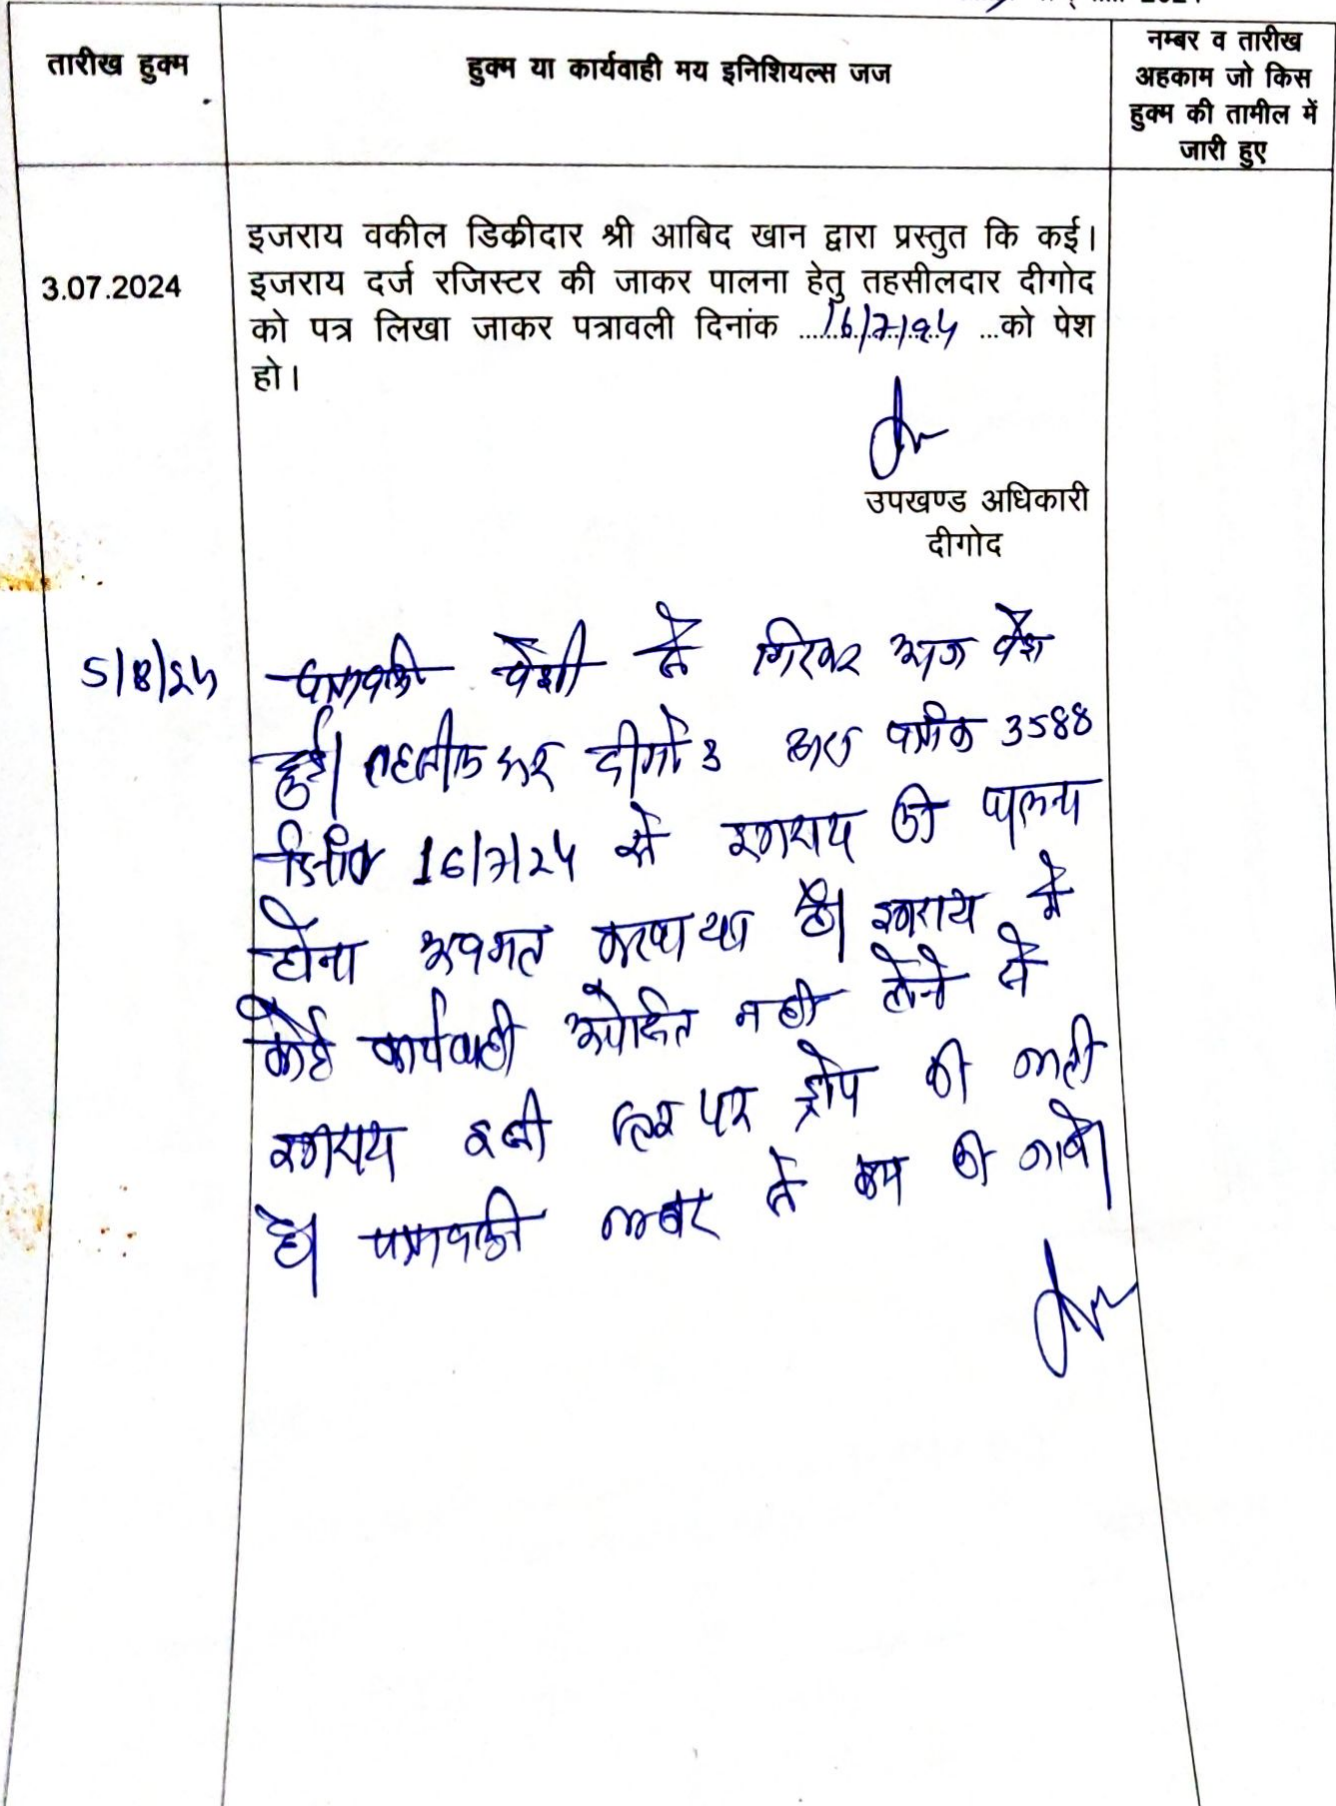 2024
तारीख हुक्म
हुक्म या कार्यवाही मय इनिशियल्स जज
नम्बर व तारीख
अहकाम जो किस
हुक्म की तामील में
जारी हुए
3.07.2024
इजराय वकील डिक्रीदार श्री आबिद खान द्वारा प्रस्तुत कि कई।
इजराय दर्ज रजिस्टर की जाकर पालना हेतु तहसीलदार दीगोद
को पत्र लिखा जाकर पत्रावली दिनांक ...16/7/24...को पेश
हो।
उपखण्ड अधिकारी
दीगोद
5/8/24
पत्रावली पेशी से आज पेश
हुई। तहसीलदार दीगोद पत्रांक 3588
दिनांक 16/7/24 से इजराय की पालना
होना अवगत कराया गया है। इजराय में
कोई कार्यवाही अपेक्षित नही होने से
इजराय इसी स्तर पर ड्रोप की जाती
है। पत्रावली नम्बर से कम की जावे।